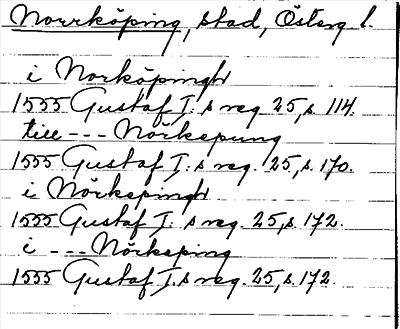 Norrköping, stad, Österg l.
i Norköpingh
1555 Gustaf I:s reg. 25, s. 114.
till --- Nörkepung
1555 Gustaf I:s reg. 25, s. 170.
i Nörkepingh
1555 Gustaf I:s reg. 25, s. 172.
i --- Nörkeping
1555 Gustaf I:s reg. 25, s. 172.